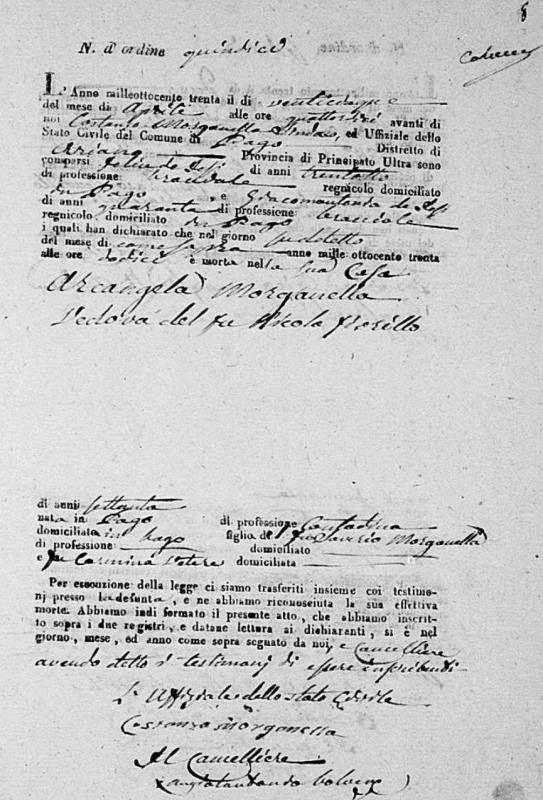 8
N. d'ordine quindici
L'Anno milleottocento trenta il dì venticinque
del mese di Aprile alle ore quattordici avanti di
noi Costanzo Morganella Sindaco, ed Uffiziale dello
Stato Civile del Comune di Pago Distretto di
Ariano Provincia di Principato Ultra sono
comparsi Felice de di anni trentotto
di professione bracciale regnicolo domiciliato
in Pago e Giacomantonio de
di anni quaranta di professione bracciale
regnicolo domiciliato in Pago
i quali han dichiarato che nel giorno sudetto
del mese di come sopra anno mille ottocento trenta
alle ore dodici è morta nella sua Casa
Arcangela Morganella
Vedova del fu Nicola
di anni settanta
nata in Pago di professione Contadina
domiciliata in Pago figlia di fu Saverio Morganella
di professione domiciliato
e fu Carmina domiciliata
Per esecuzione della legge ci siamo trasferiti insieme coi testimo-
nj presso la defunta, e ne abbiamo riconosciuta la sua effettiva
morte. Abbiamo indi formato il presente atto, che abbiamo inscrit-
to sopra i due registri, e datane lettura ai dichiaranti, si è nel
giorno, mese, ed anno come sopra segnato da noi, e Cancelliere
avendo detto i testimonj di essere inscribendi
L'Uffiziale dello stato Civile
Costanzo Morganella
Il Cancelliere